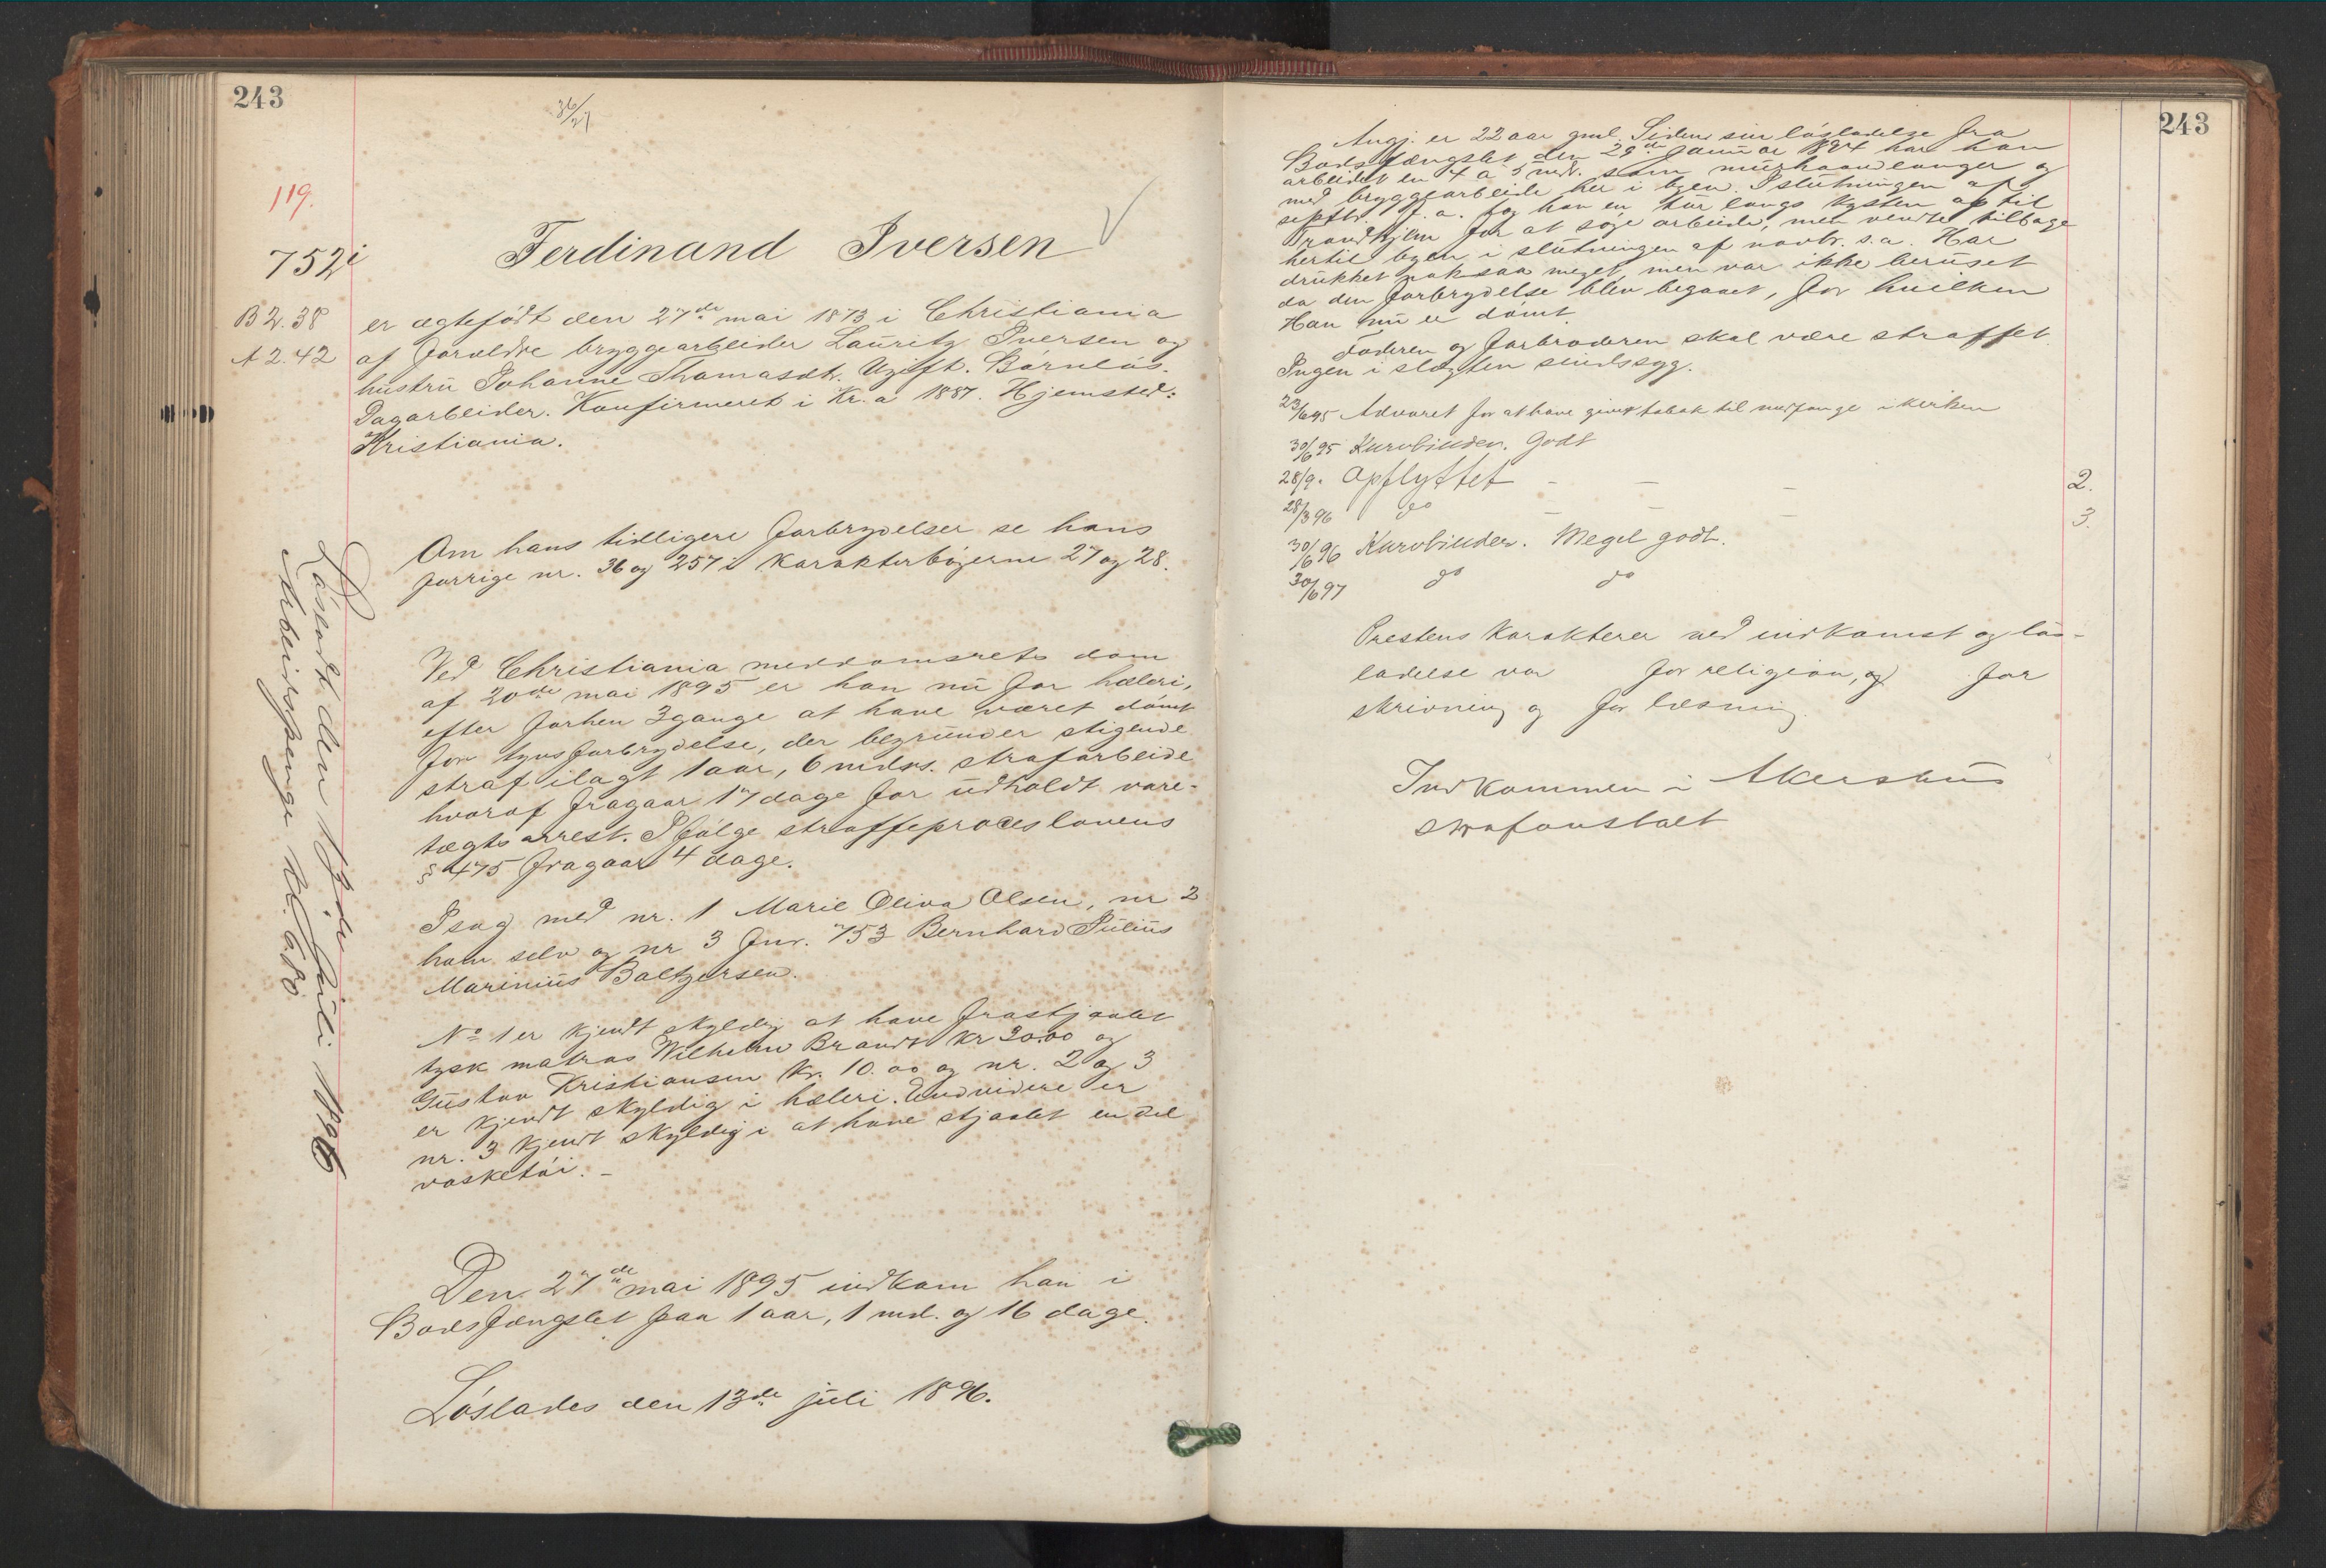 243
36/27
119.
Ferdinand Iversen
752i
B 2. 38
A 2. 42
er ægtefødt den 27de mai 1873 i Christiania
af forældre bryggearbeider Lauritz Iversen og
hustru Johanne Thomasdt. Ugift. Barnløs.
Dagarbeider. Konfirmeret i Kr.a 1887. Hjemsted:
Kristiania.
Om hans tidligere forbrydelser se hans
forrige nr. 36 og 257 i karakterbøgerne 27 og 28.
Ved Christiania meddomsrets dom
af 20de mai 1895 er han nu for hæleri,
efter forhen 3 gange at have været dømt
for tyvsforbrydelse, der begrunder stigende
straf ilagt 1 aar, 6 mdrs. strafarbeide
hvoraf fragaar 17 dage for udholdt vare-
tægts arrest. I følge straffeproceslovens
§ 475 fragaar 4 dage.
I sag med nr. 1 Marie Oliva Olsen, nr 2
ham selv og nr 3 fnr. 753 Bernhard Julius
Marinius Baltzersen.
No 1 er kjendt skyldig at have frastjaalet
tysk matros Wilhelm Brandt kr 30.00 og
Gustav Kristiansen kr. 10.00 og nr. 2 og 3
er kjendt skyldig i hæleri. Endvidere er
nr. 3 kjendt skyldig i at have stjaalet en del
vasketøi. –
Den 27de mai 1895 indkom han i
Bodsfængslet paa 1 aar, 1 md. og 16 dage.
Løslades den 13de juli 1896.
Løsladt den juli 1896
Arbeidspenge
243
Angj. er 22 aar gml. Siden sin løsladelse fra
Bodsfængslet den 29de januar 1894 har han
arbeidet en 4 a 5 mdr. som murhaandlanger og
med bryggearbeide her i byen. I slutningen af
septbr. f. a. tog han en tur langs kysten op til
Trondhjem for at søge arbeide, men vendte tilbage
hertil byen i slutningen af novbr. s. a. Har
drukket noksaa meget, men var ikke beruset
da den forbrydelse blev begaaet, for hvilken
Han nu er dømt.
Faderen og farbroderen skal være straffet.
Ingen i slægten sindssyg.
23/6 95 Advaret for at have givet tobak til medfange i kirken
30/6 95 Kurvbinder. Godt
28/9. Opflyttet – – – 2.
28/3 96 do – – 3.
30/6 96 Kurvbinder. Meget godt.
30/6 97 do do
Prestens karakterer ved indkomst og løs-
ladelse var for religion, og for
skrivning og for læsning.
Indkommen i Akershus
strafanstalt